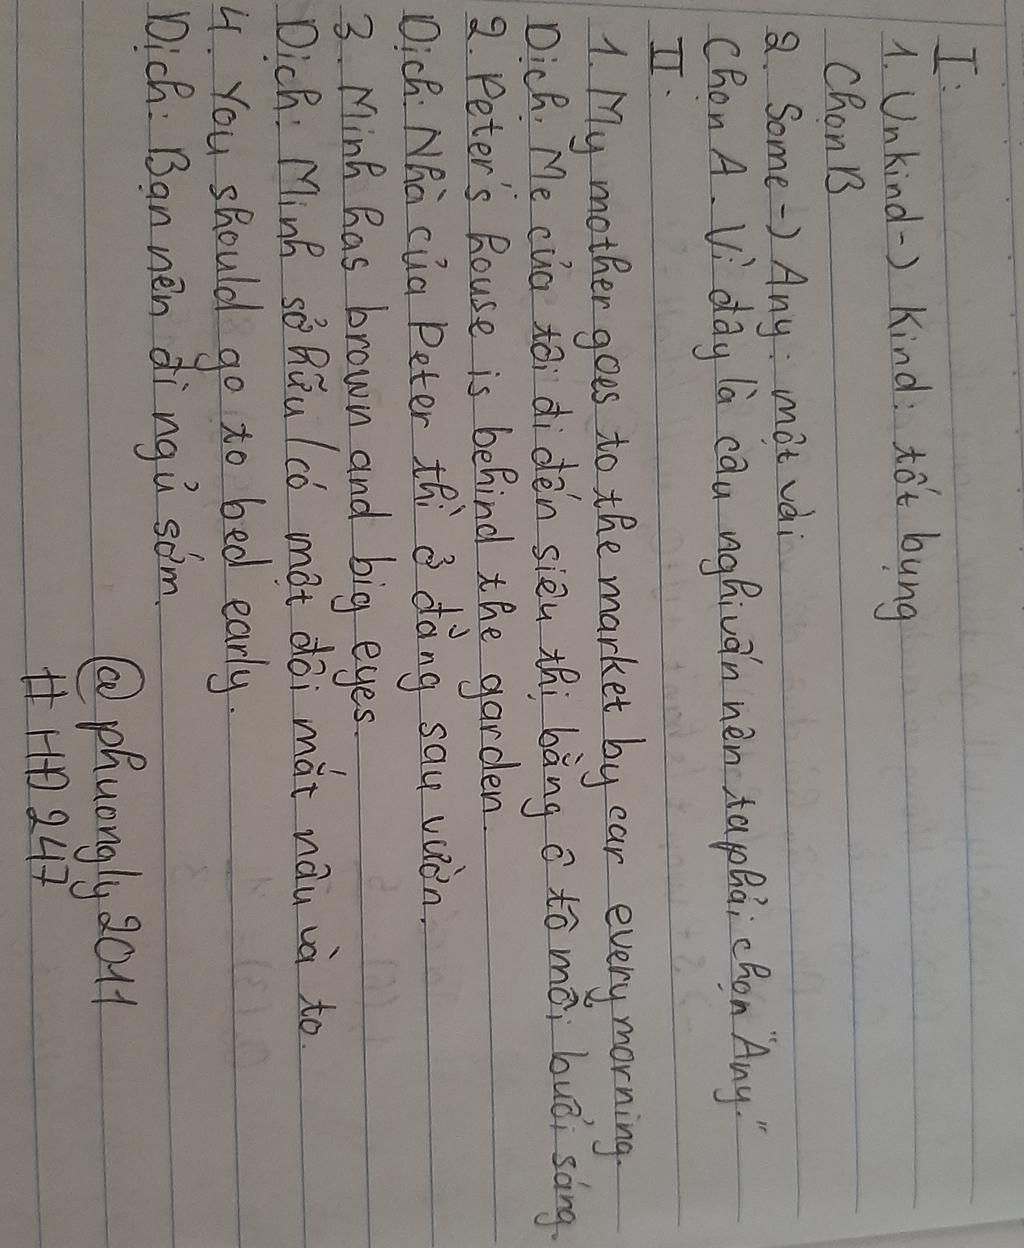 I.
1. Unkind -> Kind: tốt bụng
Chọn B
2. Some -> Any: một vài
Chọn A. Vì đây là câu nghi vấn nên ta phải chọn "Any."
II.
1. My mother goes to the market by car every morning.
Dịch: Mẹ của tôi đi đến siêu thị bằng ô tô mỗi buổi sáng.
2. Peter's house is behind the garden.
Dịch: Nhà của Peter thì ở đằng sau vườn.
3. Minh has brown and big eyes.
Dịch: Minh sở hữu/có một đôi mắt nâu và to.
4. You should go to bed early.
Dịch: Bạn nên đi ngủ sớm.
@phuongly2011
# HĐ247